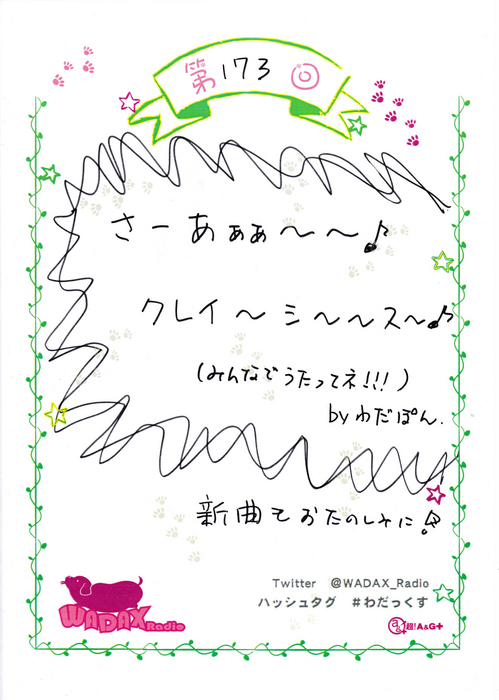 第173回
さーあぁぁ～～♪
クレイ～シ～～ス～♪
(みんなでうたってネ!!!)
by わだぽん.
新曲もおたのしみに!?
Twitter @WADAX_Radio
ハッシュタグ #わだっくす
WADAX Radio
超!A&G+